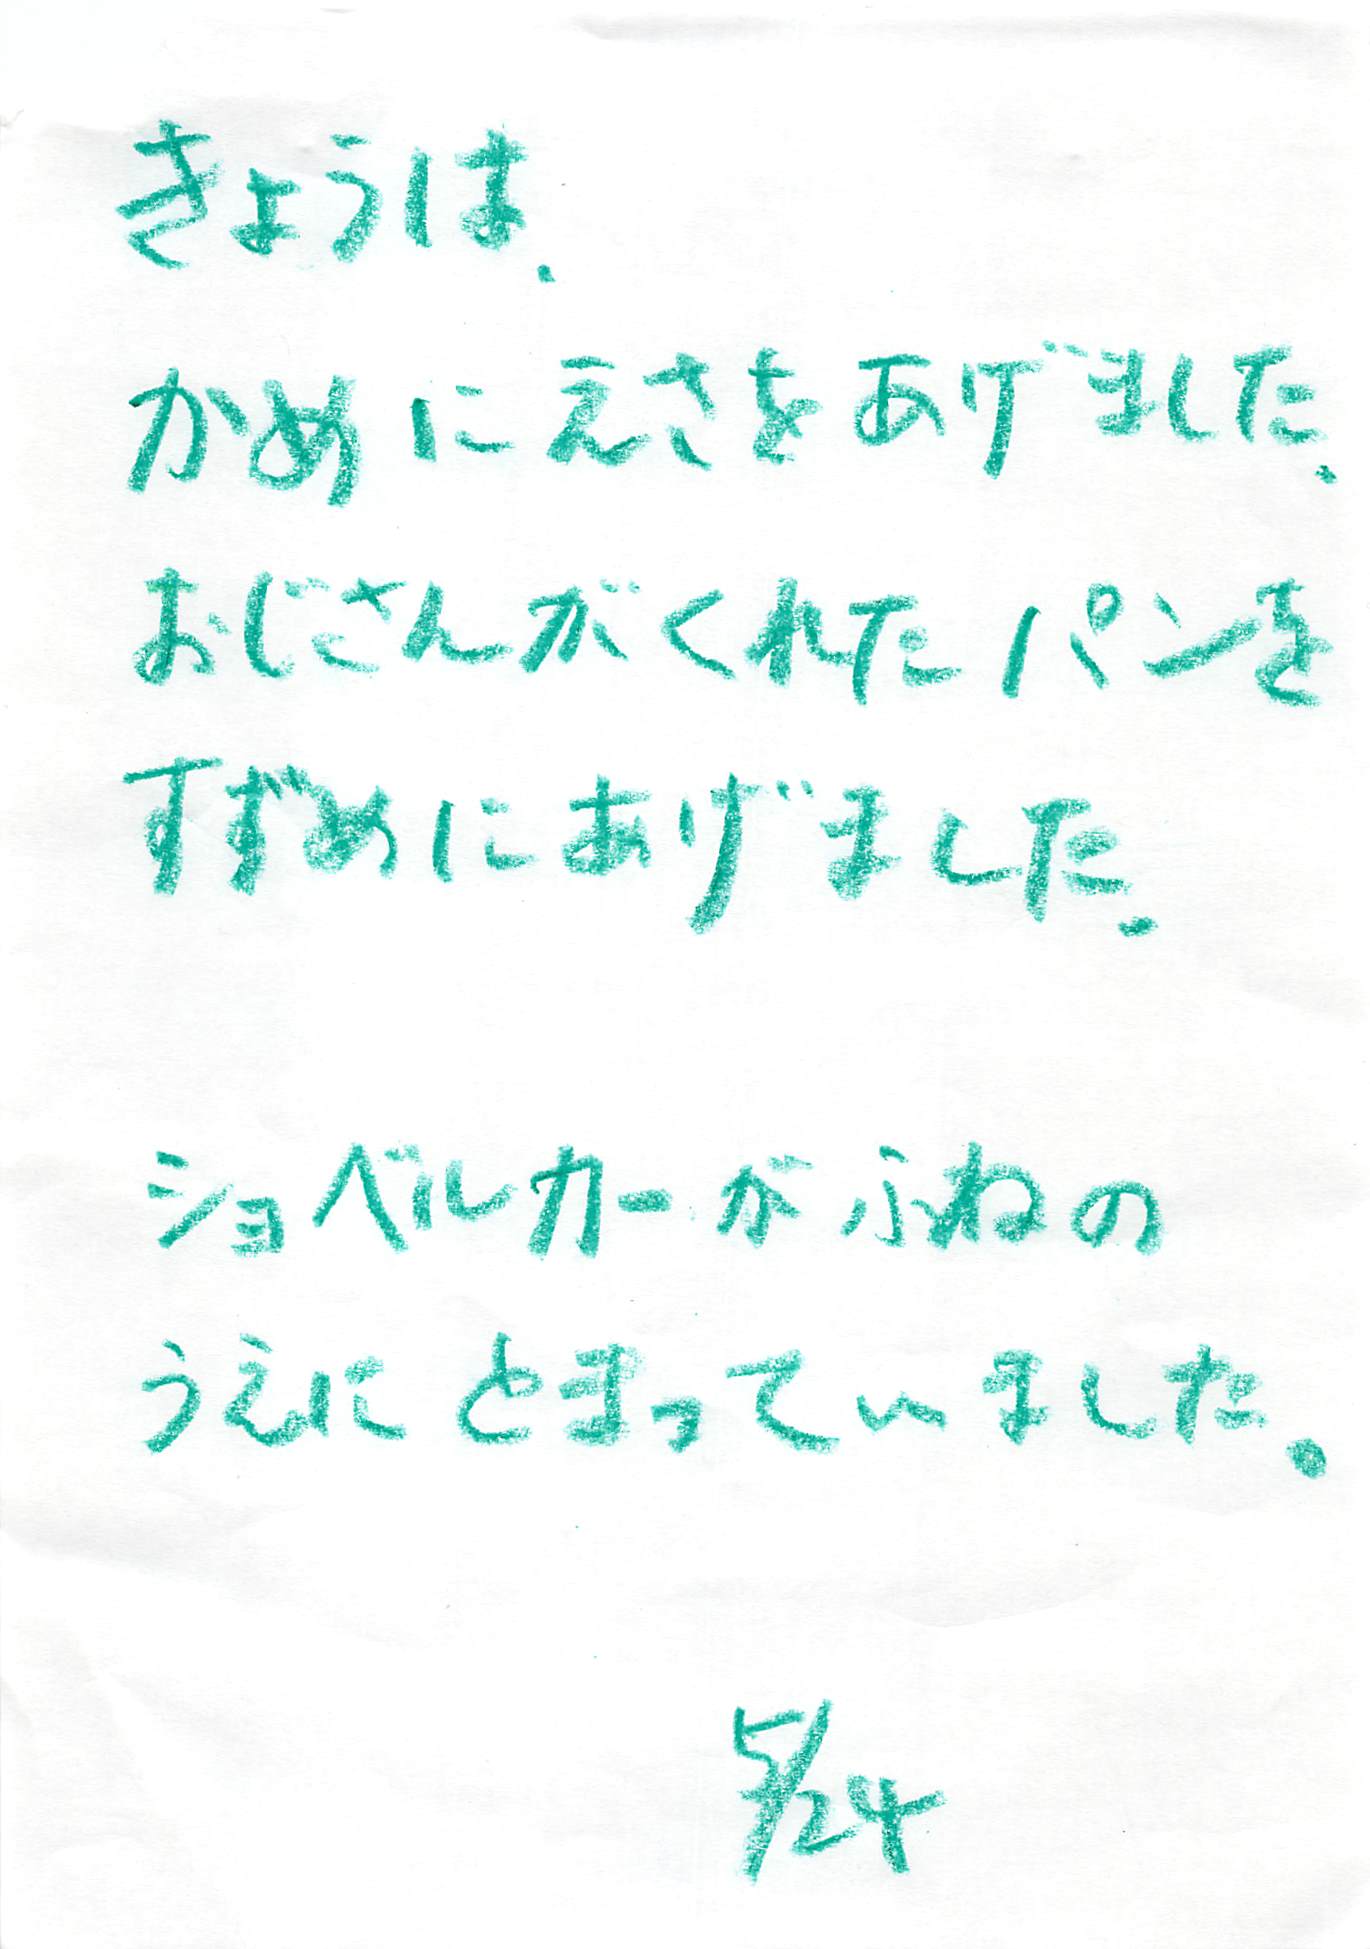 きょうは.
かめにえさをあげました.
おじさんがくれたパンを
すずめにあげました.
ショベルカーがふねの
うえにとまっていました.
5/24